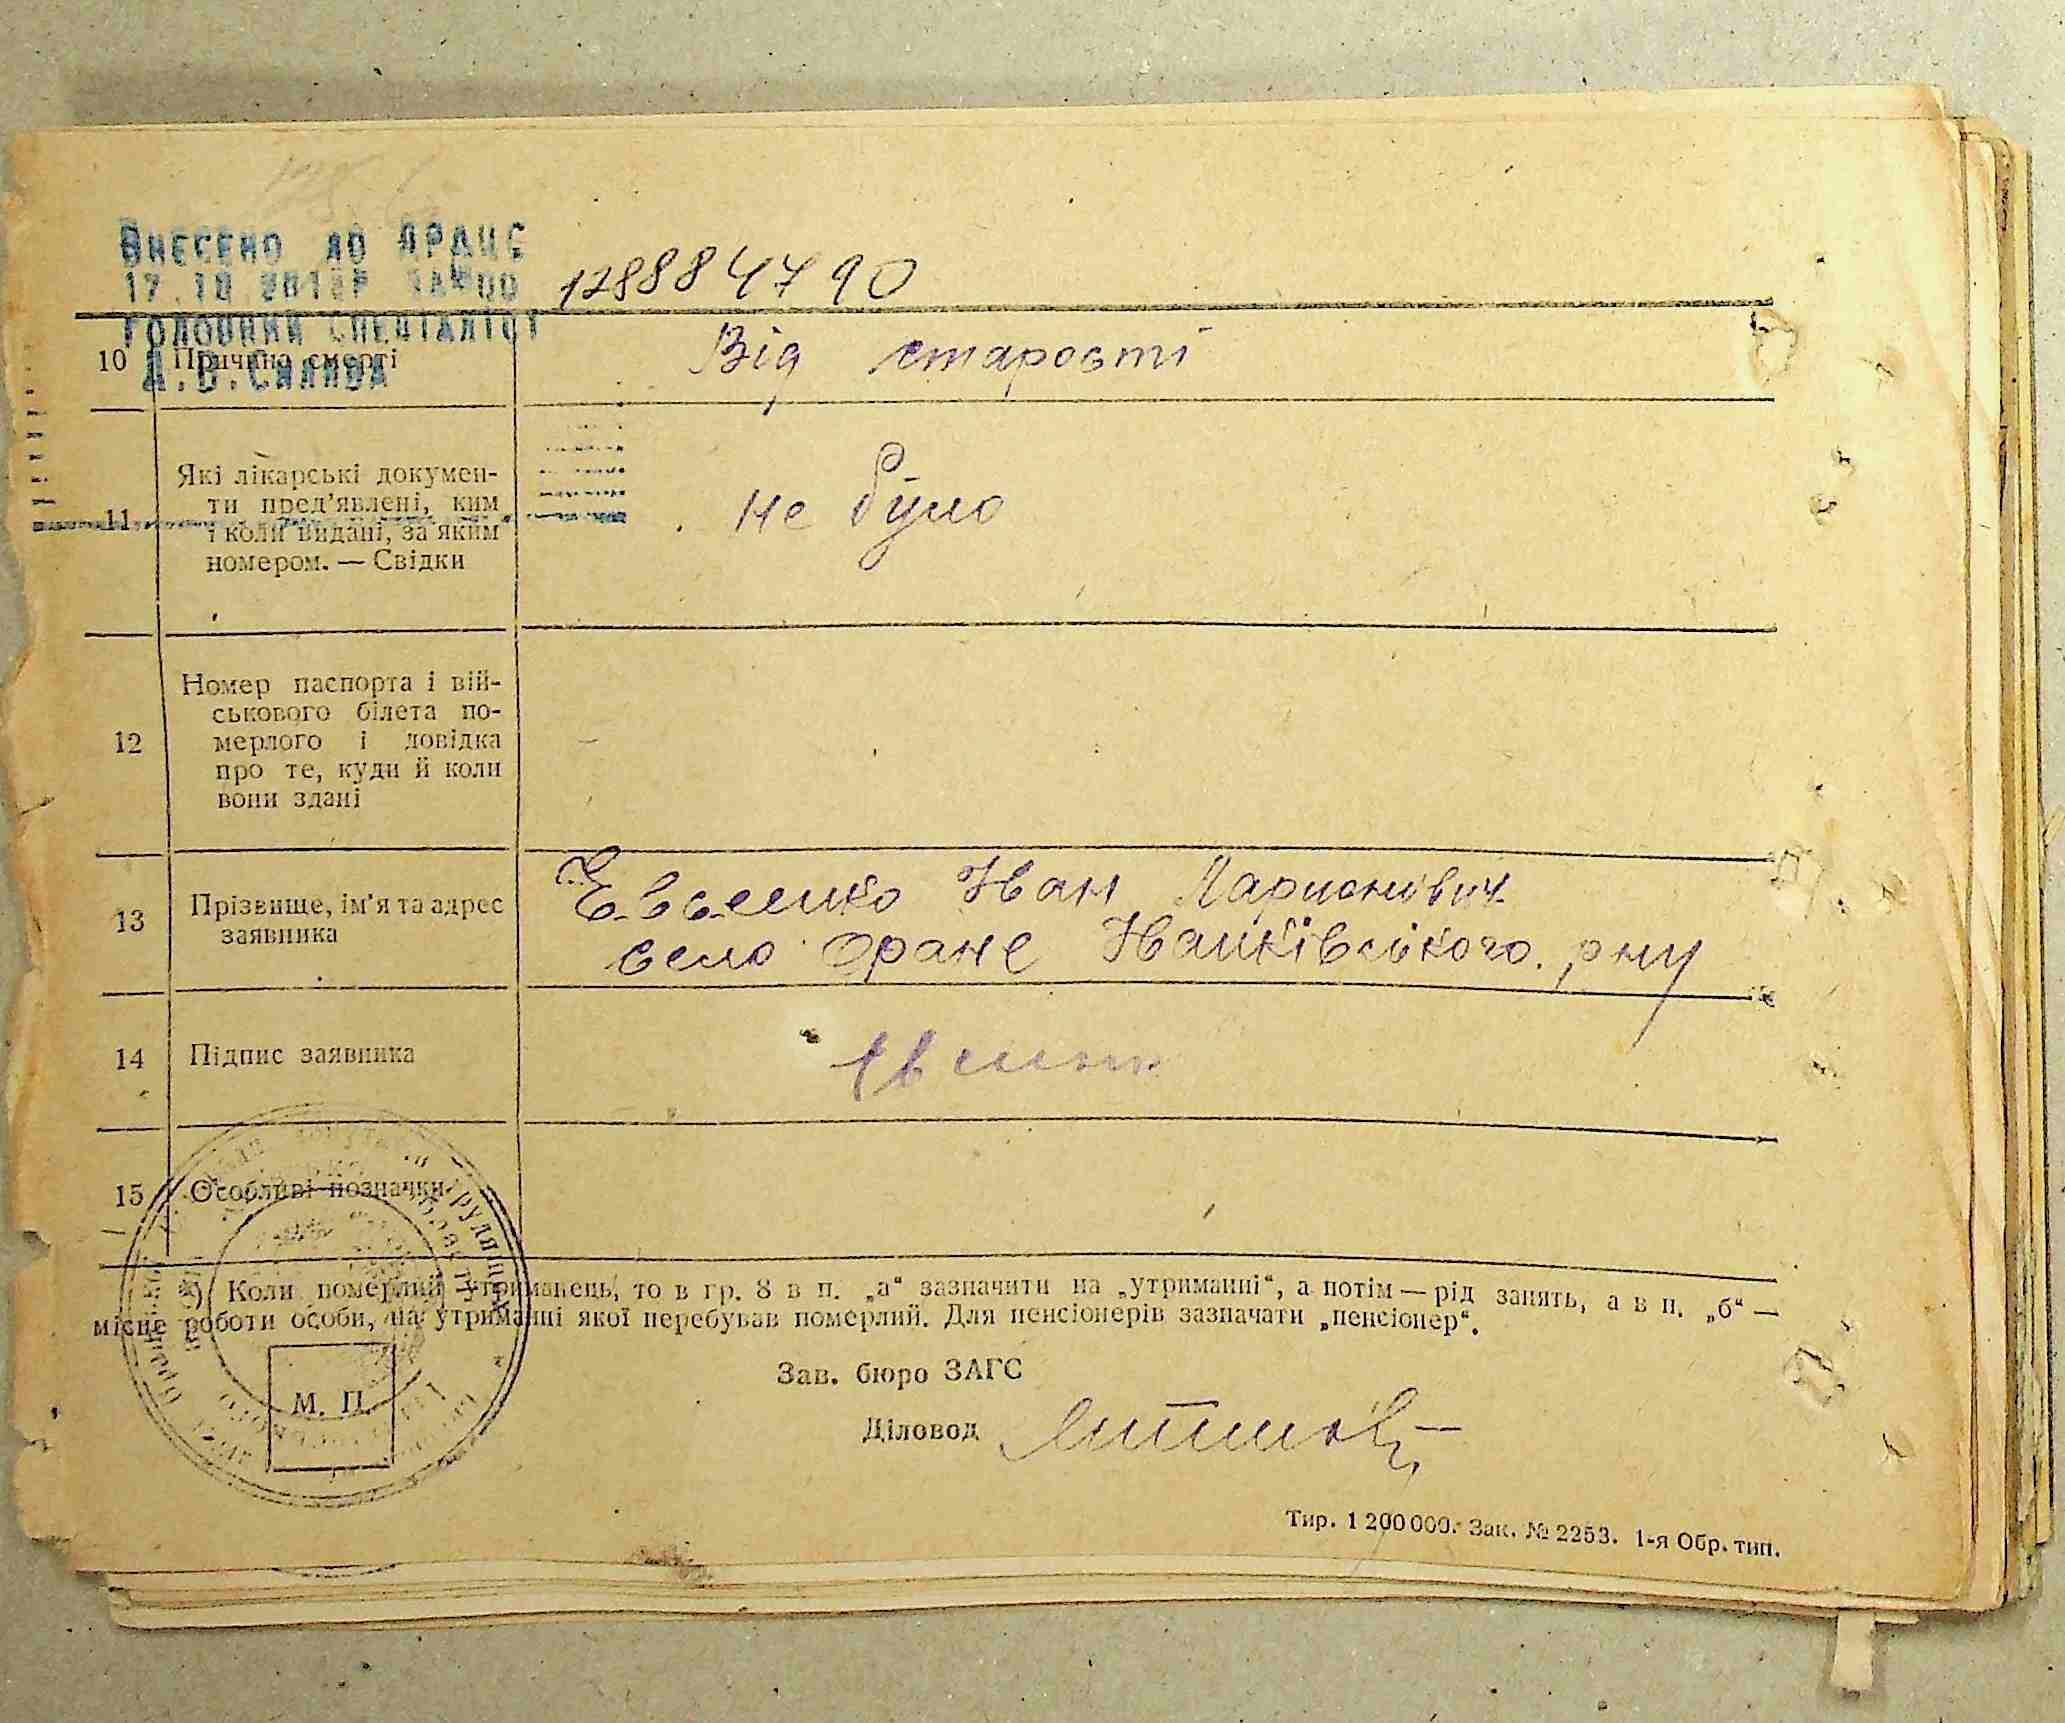 Внесено до ДРАЦС
128884790
Головний спеціаліст
10 Причина смерті
Від старості
11 Які лікарські докумен-
ти пред'явлені, ким
і коли видані, за яким
номером. — Свідки
не було
12 Номер паспорта і вій-
ськового білета по-
мерлого і довідка
про те, куди й коли
вони здані
13 Прізвище, ім'я та адрес
заявника
Евсенко Іван Ларионович
село Оране Іванківського рну
14 Підпис заявника
15 Особливі позначки
*) Коли померлий утриманець, то в гр. 8 в п. „а“ зазначити на „утриманні“, а потім — рід занять, а в п. „б“ —
місце роботи особи, на утриманні якої перебував померлий. Для пенсіонерів зазначати „пенсіонер“.
Зав. бюро ЗАГС
М. П.
Діловод
Тир. 1 200 000. Зак. № 2253. 1-я Обр. тип.